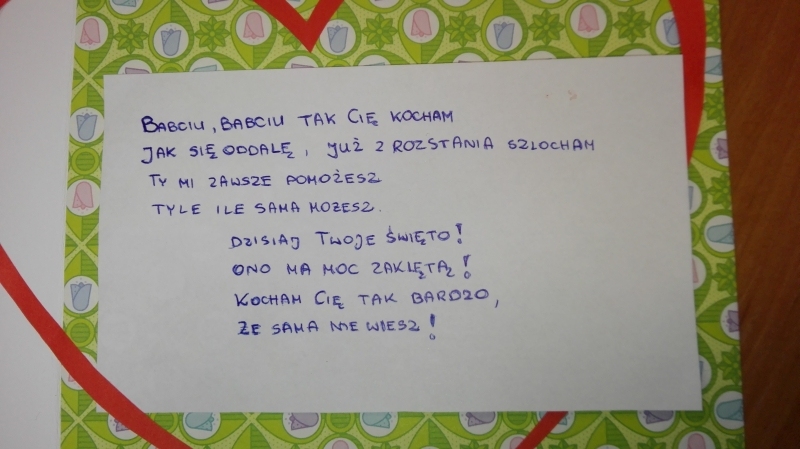 BABCIU, BABCIU TAK CIĘ KOCHAM
JAK SIĘ ODDALĘ, JUŻ Z ROZSTANIA SZLOCHAM
TY MI ZAWSZE POMOŻESZ
TYLE ILE SAMA MOŻESZ.
DZISIAJ TWOJE ŚWIĘTO!
ONO MA MOC ZAKLĘTĄ!
KOCHAM CIĘ TAK BARDZO,
ŻE SAMA NIE WIESZ!